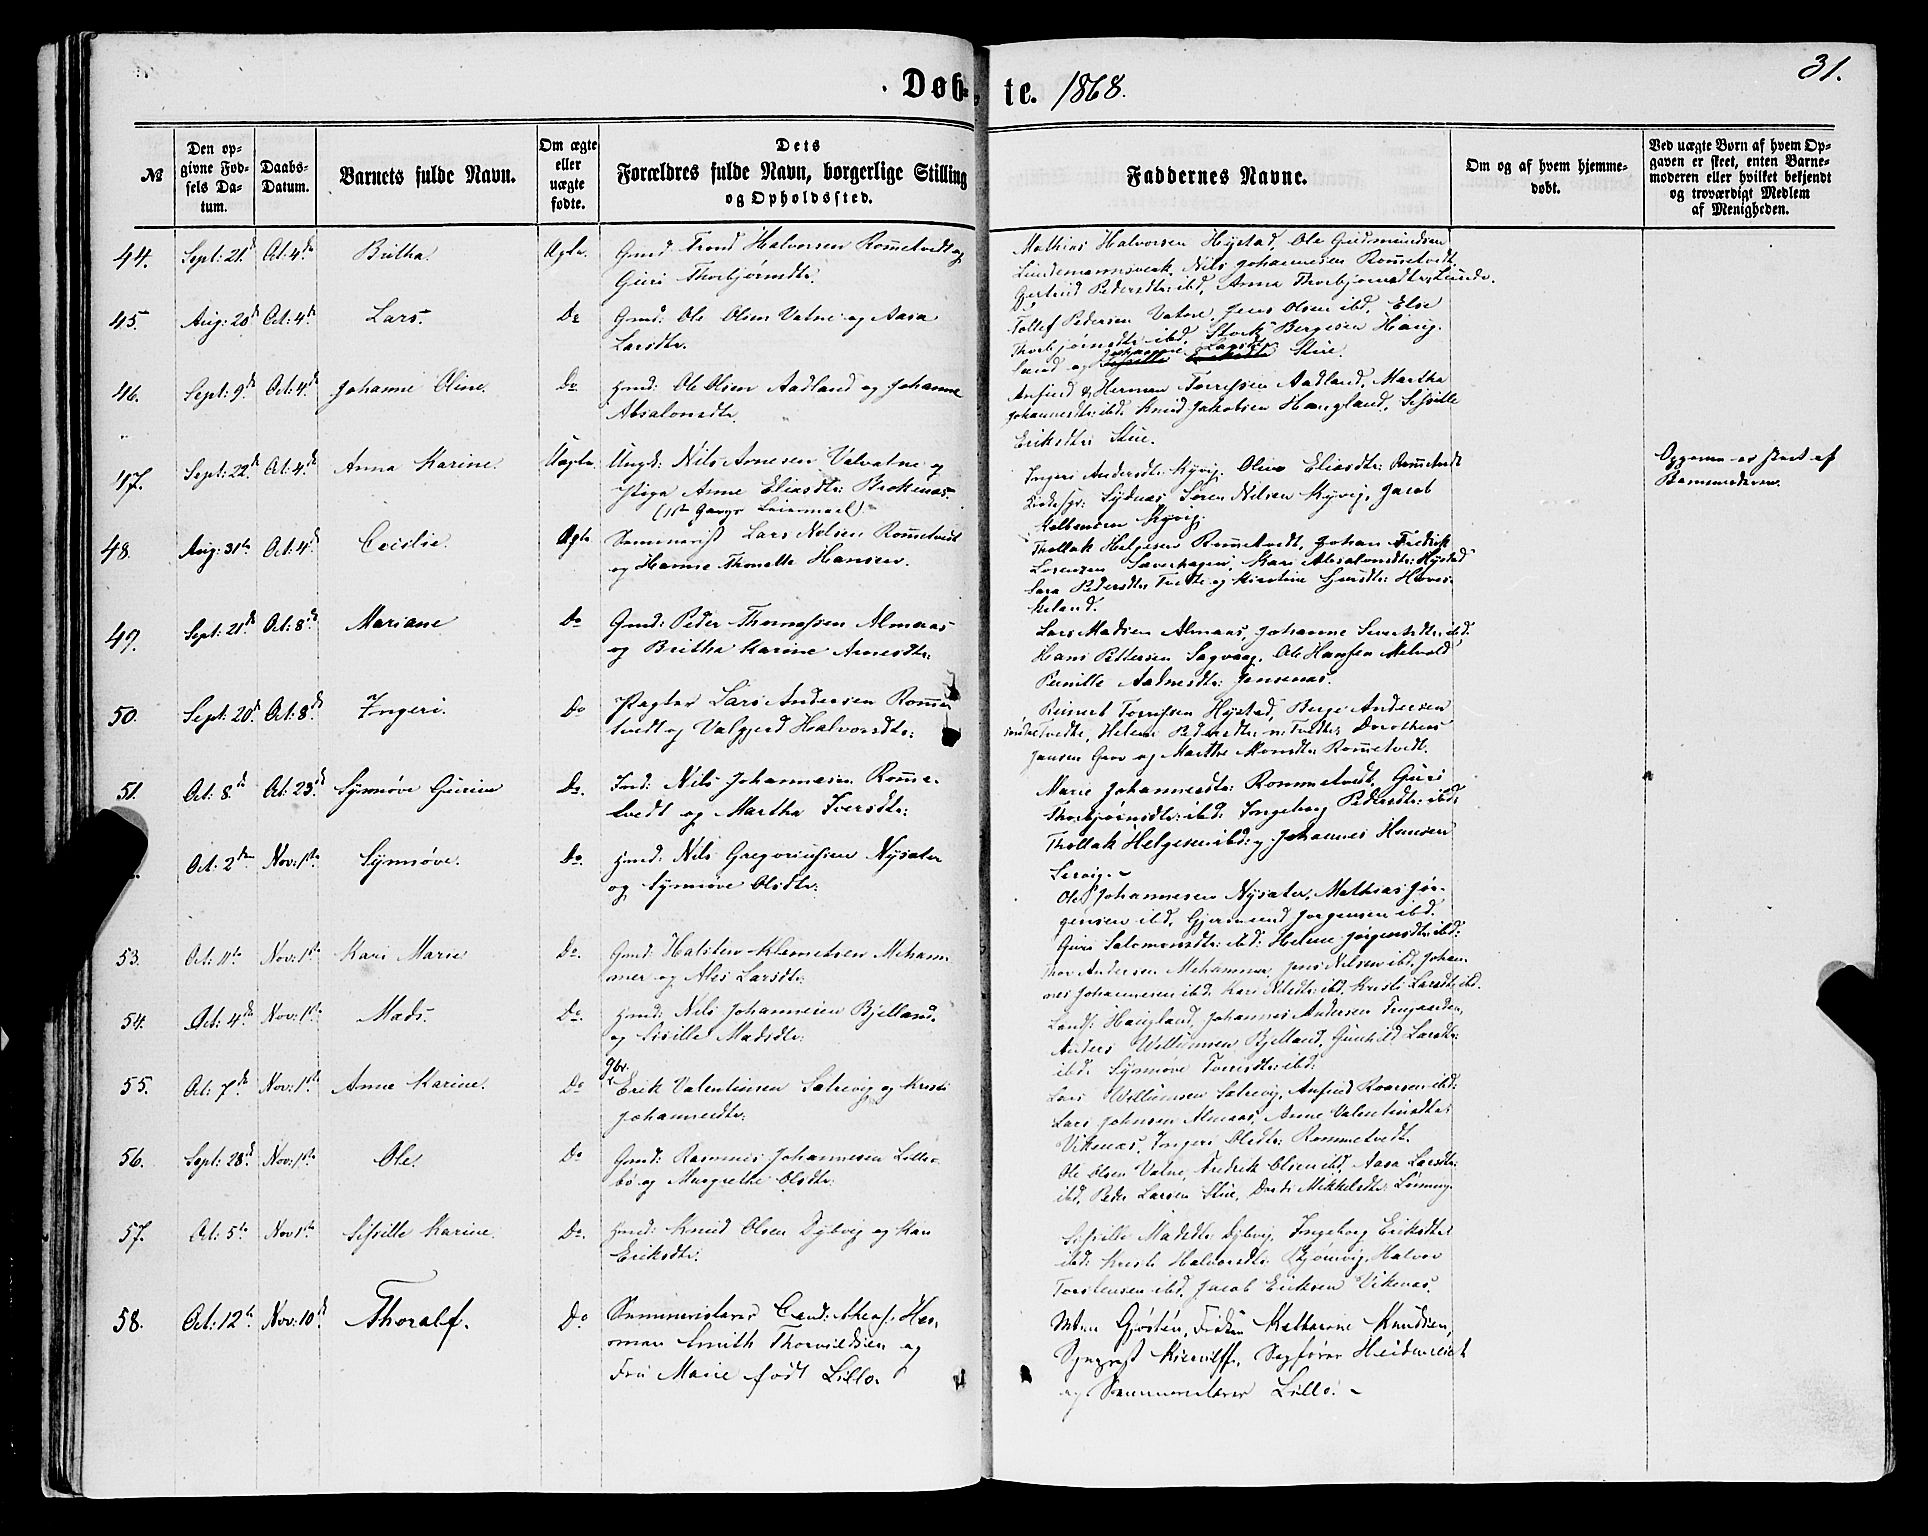 31.
Døbte. 1868.
№
Den opgivne Fødsels Datum.
Daabs-Datum.
Barnets fulde Navn.
Om ægte eller uægte fødte.
Dets Forældres fulde Navn, borgerlige Stilling og Opholdssted.
Faddernes Navne.
Om og af hvem hjemmedøbt.
Ved uægte Børn af hvem Opgaven er skeet, enten Barnemoderen eller hvilket bekjendt og troværdigt Medlem af Menigheden.
44. Sept: 21de Oct: 4de Britha. Ægte. Gmd Trond Halvorsen Rometvedt og
Guri Thorbjørnsdtr.
Mathias Halvorsen Hystad, Ole Gudmundsen
Nils Johannesen Rometvedt
Gertrud Pedersdtr: ibd, Anna Thorbjørnsdtr: Lunde.
45. Aug: 20de Oct: 4de Lars. Do Gmd: Ole Olsen Vatne og Aasa
Larsdtr.
Tollef Pedersen Vatne, Jens Olsen ibd, Else
Thorbjørnsdtr ibd, Bergesen Haug-
land og Johanne Larsdtr Stue.
46. Sept: 9de Oct: 4de Johanne Oline. Do Gmd: Ole Olsen Aadland og Johanne
Absalonsdtr.
Anfind & Herman Torrissen Aadland, Martha
Johannesdtr: ibd. Knud Jakobsen Haugland, Sissille
Eriksdtr: Stue.
47. Sept: 22de Oct: 4de Anna Karine. Uægte. Ungk: Nils Arnesen Valvatne og
Piga Anne Eliasdtr: Brekenæs.
(1ste Gangs Leiermaal).
Ingeri Andersdtr Kyvig, Oline Eliasdtr: Rometvedt
Sydnæs Søren Nelsen Kyvig, Jacob
Kyvig.
Opgaven er skeet af
Barnemoderen.
48. Aug: 31te Oct: 4de Cecilie. Ægte. Seminarist Lars Nelsen Rometvedt
og Hanne Thonette Hansen.
Thollak Helgesen Rometvedt, Johan Fredrik
Lorenzen Kari Absalonsdtr: Hystad
Sara Pedersdtr: Tvedte og
49. Sept: 21de Oct: 8de Mariane Do Gmd: Peder Thomassen Almaas
og Britha Karine Arnesdtr:
Lars Madsen Almaas, Johanne ibd.
Hans Pettersen Sagvaag, Ole Hansen
Pernille Jensenæs.
50. Sept: 20de Oct: 8de Ingeri. Do Pagter Lars Andersen Rome-
tvedt og Valgjerd Halvorsdtr:
Reinert Torrissen Hystad, Berge Andersen
Tvedte, Helene Pedersdtr: Dorothea
Jansen og Marthe Monsdtr: Rometvedt.
51. Oct: 8de Oct: 25de Synnøve Gurine Do. Gmd: Nils Johannesen Rome-
tvedt og Martha Iversdtr:
Marie Johannesdtr: Rommetvedt, Guri
Thorbjørnsdtr: ibd. Ingeborg Pedersdtr: ibd:
Thollak Helgesen ibd: og Johannes Hansen
Oct: 2den Nov: 1ste Synnøve. Do. Gmd: Nils Gregoriussen Nysæter
og Synnøve Olsdtr:
Ole Johannesen Nysæter, Mathias Jør-
gensen ibd, Gjermund Jørgensen ibd.
Guri Salomonsdtr: ibd: Helene Jørgensdtr: ibd:
53. Oct: 11te Nov: 1ste Kari Marie Do. Gmd: Halsten Klemetsen Meham-
mer og Ales Larsdtr:
Thor Andersen Mehammer, Jens Nelsen ibd, Johan-
nes Johannesen ibd. Kari Nelsdtr: ibd, Kristi Larsdtr ibd.
54. Oct: 4de Nov: 1ste Mads. Do. Gmd: Nils Johannesen Bjelland
og Sisille Madsdtr:
Haugland, Johannes Andersen
Anders Villumsen Bjelland, Gunhild Larsdtr:
ibd. Synnøve ibd:
55. Oct: 7de Nov: 1ste Anne Karine. Do Gbr. Erik Valentinsen Sætrevig og Kristi
Johannesdtr:
Lars Villumsen Sætrevig, Anfind Roarsen ibd:
Lars Johnsen Almaas, Anne Valentinsdtr:
Vikenæs, Ingeri Olsdtr: Rommetvedt.
56. Sept: 28de Nov: 1ste Ole. Do Gmd: Rasmus Johannesen Lille-
bø og Margrethe Olsdtr:
Ole Olsen Vatne, Fredrik Olsen ibd, Aasa Larsdtr:
ibd, Peder Larsen Stue, Mikkelsdtr:
57. Oct: 5te Nov 1ste Sissille Karine. Do. Gmd: Knud Olsen Dybvig og Kari
Eriksdtr:
Sissille Madsdtr Dybvig, Ingeborg Eriksdtr
ibd: Kristi Halvorsdtr: Halvor
Torstensen ibd. Jacob Eriksen Vikenæs.
58. Oct: 12te Nov: 10de Thoralf. Do Seminarielærer Cand: theol: Her-
man Smith Thorvildsen og
Fru Marie født Lillo.
Frøken Katharine Knudsen,
Sagfører
og Seminarielærer Lillo. -